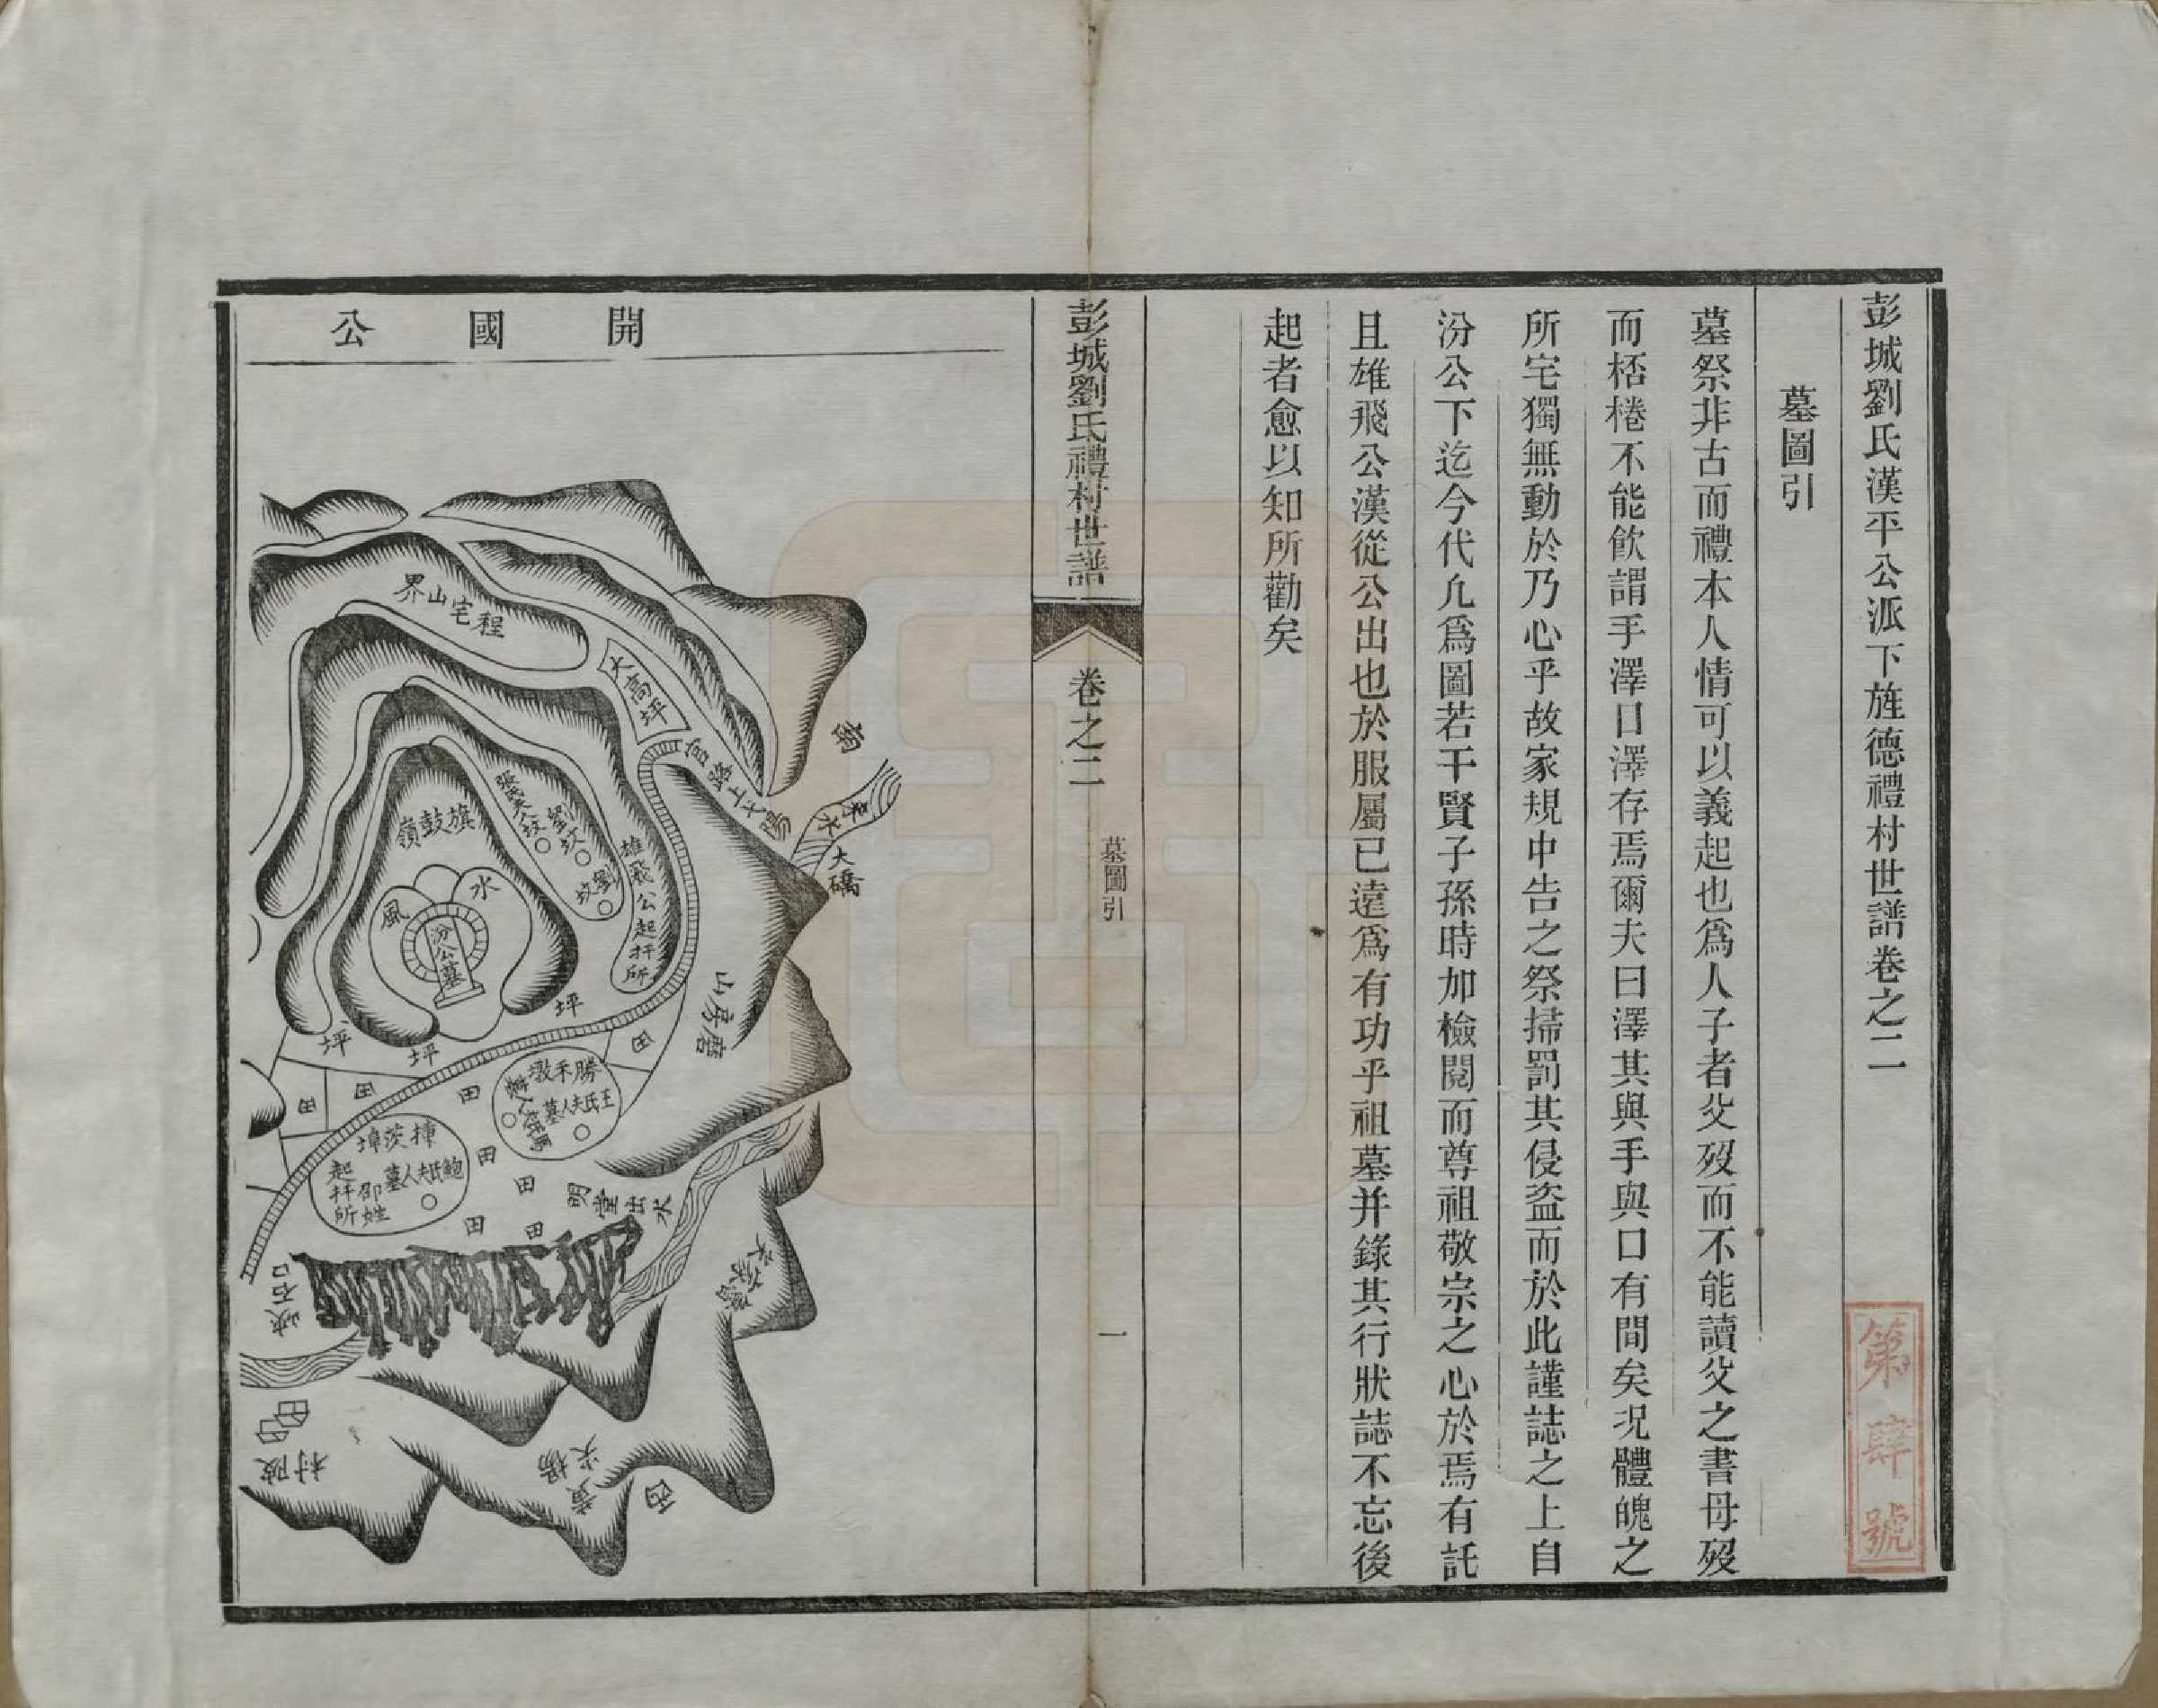 彭城劉氏漢平公派下旌德禮村世譜卷之二
墓圖引
墓祭非古而禮本人情可以義起也爲人子者父歿而不能讀父之書母歿
而桮棬不能飮謂手澤口澤存焉爾夫曰澤其與手與口有間矣况體魄之
所宅獨無動於乃心乎故家規中告之祭掃罰其侵盜而於此謹誌之上自
汾公下迄今代凢爲圖若干賢子孫時加檢閱而尊祖敬宗之心於焉有託
且雄飛公漢從公出也於服屬已遠爲有功乎祖墓并錄其行狀誌不忘後
起者愈以知所勸矣
第肆號
彭城劉氏禮村世譜
卷之二
墓圖引
一
開國公
程宅山界
大高坪
官路上七陽
南
來水
大礄
旗鼓嶺
張氏夫人坟
劉坟
劉坟
雄飛公起扦所
水
風
汾公墓
坪
坪
坪
磨房山
田
田
田
田
勝禾墩
王氏夫人墓
田
田
田
田
鮑氏夫人墓
邵姓
起扦所
明堂出水
石峽
田
村陂
黃楊尖
西